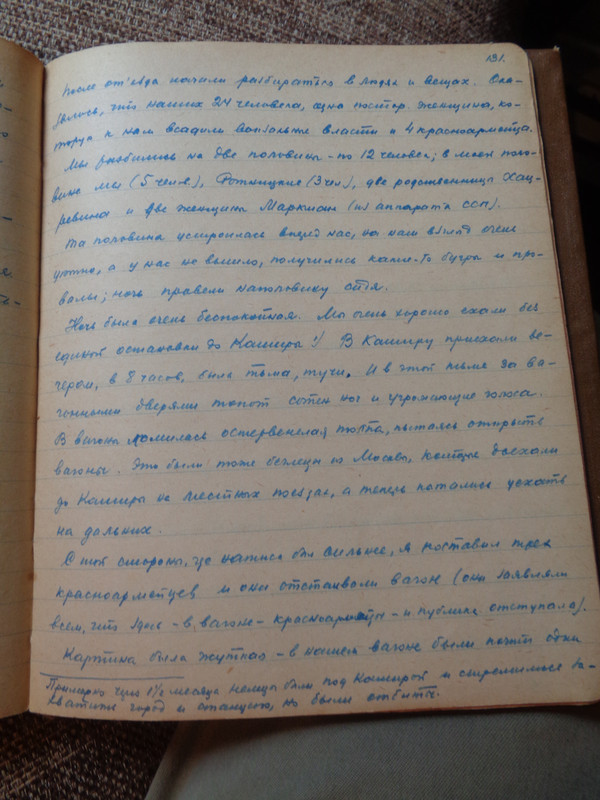 131.
После от'езда начали разбираться в людях и вещах. Ока-
залось, что наших 24 человека, одна постор. женщина, ко-
торую к нам всадили вокзальные власти и 4 красноармейца.
Мы разбились на две половины - по 12 человек; в моей поло-
вине мы (5 чел.), (3 чел), две родственницы Хац-
ревина и две женщины Маркман (из аппарата ССП).
Та половина устроилась вперед нас, на наш взгляд очень
уютно, а у нас не вышло, получились какие-то бугры и про-
валы; ночь провели наполовину сидя.
Ночь была очень беспокойная. Мы очень хорошо ехали без
единой остановки до Каширы! В Каширу приехали ве-
чером, в 8 часов, была тьма, тучи. И в этой тьме за ва-
гонными дверями топот сотен ног и угрожающие голоса.
В вагоны ломилась остервенелая толпа, пытаясь открыть
вагоны. Это были тоже беженцы из Москвы, которые доехали
до Каширы на местных поездах, а теперь пытались уехать
на дальних.
С той стороны, где натиск был сильнее, я поставил трех
красноармейцев и они отстаивали вагон (они заявляли
всем, что здесь - в вагоне - красноармейцы - и публика отступала).
Картина была жуткая - в нашем вагоне были почти одни
Примерно через 1½ месяца немцы были под Каширой и стремились за-
хватить город и станцию, но были отбиты.